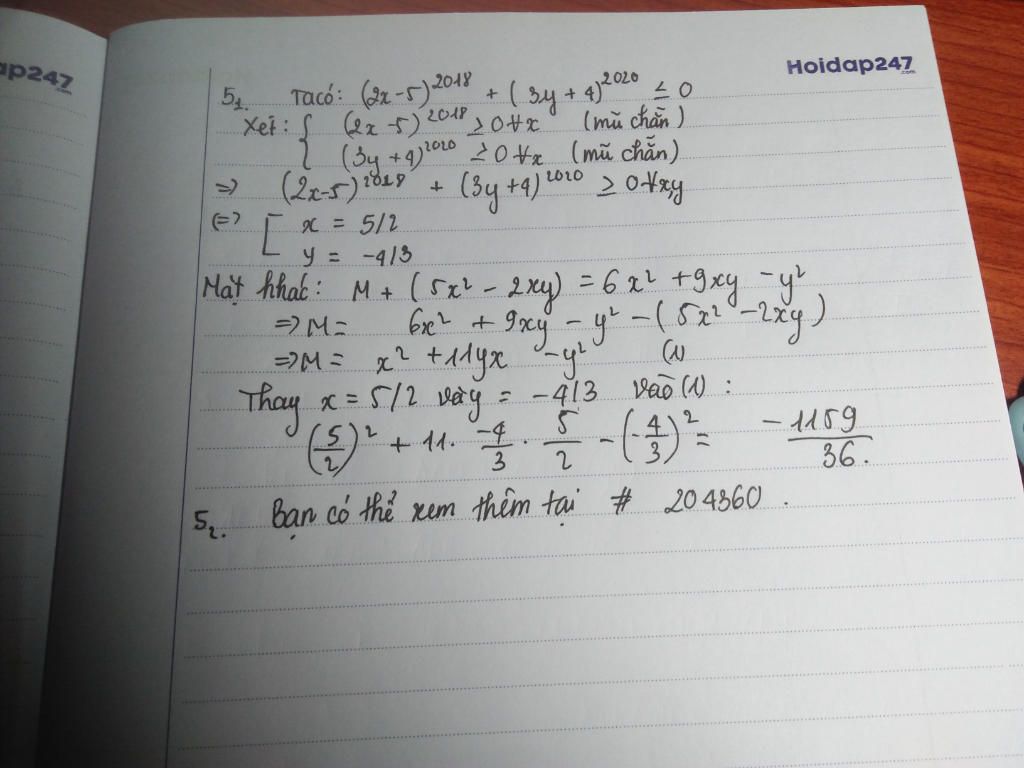 ap247
.com
Hoidap247
.com
5₁. Ta có: (2x-5)²⁰¹⁸ + (3y+4)²⁰²⁰ ≤ 0
Xét: { (2x-5)²⁰¹⁸ ≥ 0 ∀x (mũ chẵn)
(3y+4)²⁰²⁰ ≥ 0 ∀x (mũ chẵn)
=> (2x-5)²⁰¹⁸ + (3y+4)²⁰²⁰ ≥ 0 ∀x,y
(=> [ x = 5/2
y = -4/3
Mặt khác: M + (5x² - 2xy) = 6x² + 9xy - y²
=> M = 6x² + 9xy - y² - (5x² - 2xy)
=> M = x² + 11yx - y² (1)
Thay x = 5/2 và y = -4/3 vào (1) :
(5/2)² + 11. -4/3 . 5/2 - (-4/3)² = -1159/36.
5₂. Bạn có thể xem thêm tại # 204360 .